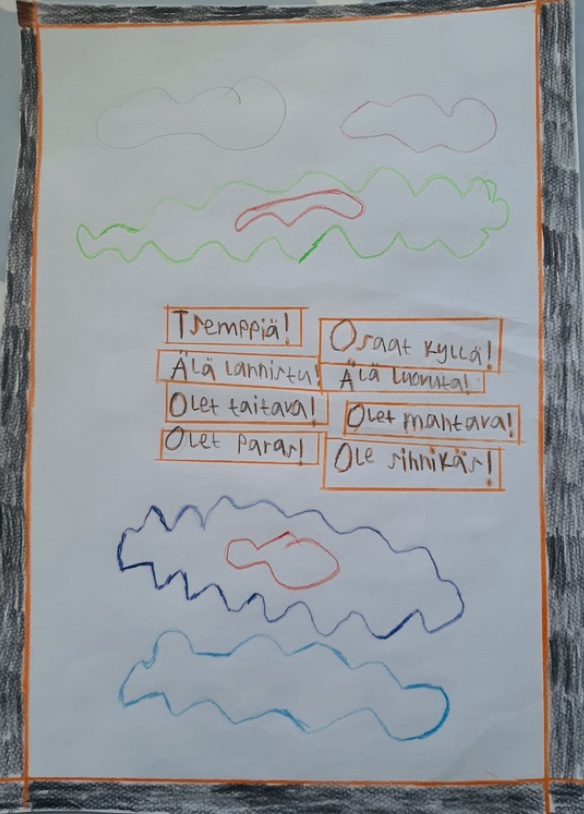 Tsemppiä!
Osaat kyllä!
Älä lannistu!
Älä luovuta!
Olet taitava!
Olet mahtava!
Olet paras!
Ole sinnikäs!